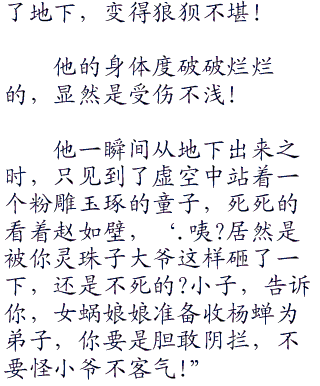 了地下，变得狼狈不堪！
他的身体度破破烂烂
的，显然是受伤不浅！
他一瞬间从地下出来之
时，只见到了虚空中站着一
个粉雕玉琢的童子，死死的
看着赵如壁，‘.咦?居然是
被你灵珠子大爷这样砸了一
下，还是不死的?小子，告诉
你，女蜗娘娘准备收杨蝉为
弟子，你要是胆敢阴拦，不
要怪小爷不客气！”